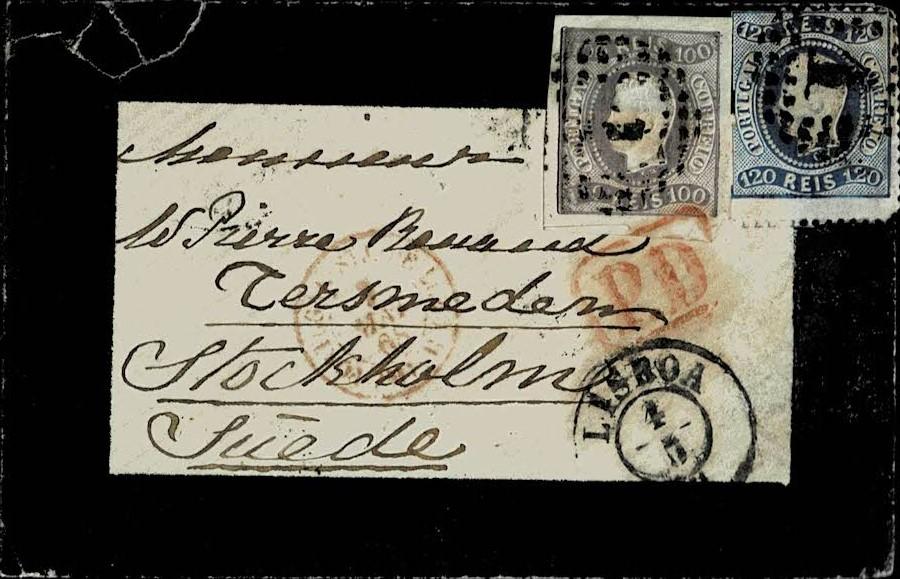 100 REIS 100
PORTUGAL
CORREIO
REIS 100
120 REIS 120
PORTUGAL
CORREIO
120 REIS 120
Monsieur
Pierre
Tersmeden
Stockholm
Suède
PD
LISBOA
1
5